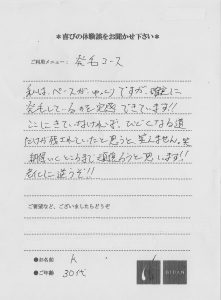 ＊喜びの体験談をお聞かせ下さい＊
ご利用メニュー： 発毛コース
私は、ペースがゆっくりですが、確実に
発毛しているのを実感できています!!
ここにきていなければ、ひどくなる道
だけが残されていたと思うと、笑えません。笑
納得いくところまで頑張ろうと思います!!
ご要望など、ございましたらどうぞ
●お名前 K
●ご年齢 30代